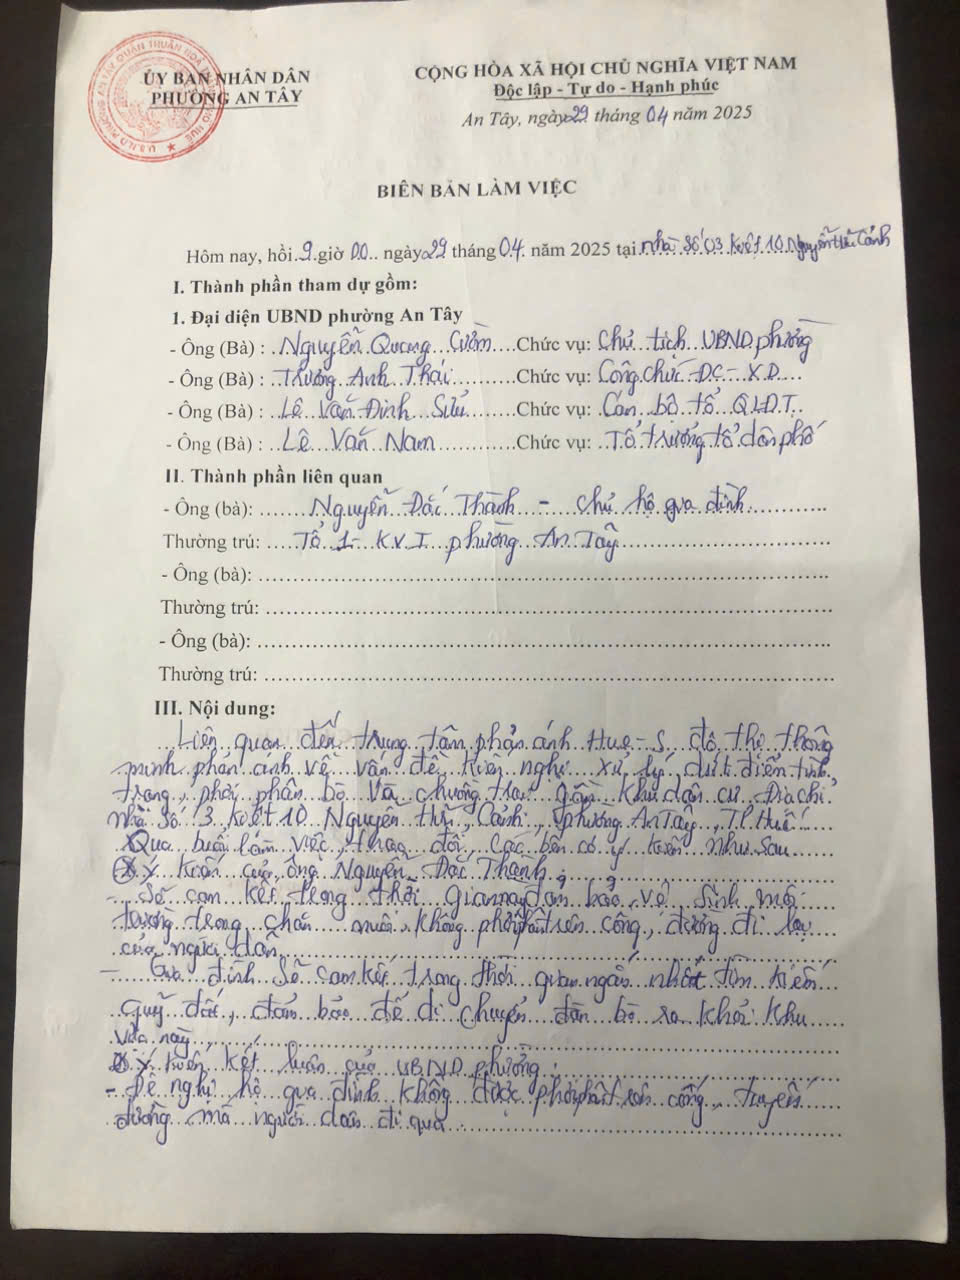 ỦY BAN NHÂN DÂN
PHƯỜNG AN TÂY
CỘNG HÒA XÃ HỘI CHỦ NGHĨA VIỆT NAM
Độc lập - Tự do - Hạnh phúc
An Tây, ngày 29 tháng 04 năm 2025
BIÊN BẢN LÀM VIỆC
Hôm nay, hồi 9 giờ 00 ngày 29 tháng 04 năm 2025 tại nhà số 03 Kiệt 10 Nguyễn Hữu Cảnh
I. Thành phần tham dự gồm:
1. Đại diện UBND phường An Tây
- Ông (Bà) : Nguyễn Quang Cườm Chức vụ: Chủ tịch UBND phường
- Ông (Bà) : Trương Anh Thái Chức vụ: Công chức ĐC - XD
- Ông (Bà) : Lê Văn Đình Sửu Chức vụ: Cán bộ tổ QLĐT
- Ông (Bà) : Lê Văn Nam Chức vụ: Tổ trưởng tổ dân phố
II. Thành phần liên quan
- Ông (bà): Nguyễn Đắc Thành - chủ hộ gia đình
Thường trú: Tổ 1 - KV I phường An Tây
- Ông (bà):
Thường trú:
- Ông (bà):
Thường trú:
III. Nội dung:
Liên quan đến trung tâm phản ánh Hue-S đô thị thông
minh phản ánh về vấn đề kiến nghị xử lý dứt điểm tình
trạng phơi phân bò và chuồng trại gần khu dân cư Địa chỉ
nhà số 3 kiệt 10 Nguyễn Hữu Cảnh, phường An Tây, TP Huế
Qua buổi làm việc, trao đổi các bên có ý kiến như sau
Ý kiến của ông Nguyễn Đắc Thành
- Sẽ cam kết trong thời gian này đảm bảo vệ sinh môi
trường trong chăn nuôi, không phơi phân trên cống, đường đi lại
của người dân
- Gia đình sẽ cam kết trong thời gian ngắn nhất tìm kiếm
quỹ đất, đảm bảo để di chuyển đàn bò ra khỏi khu
vực này
Ý kiến kết luận của UBND phường
- Đề nghị hộ gia đình không được phơi phân trên cống, tuyến
đường mà người dân đi qua